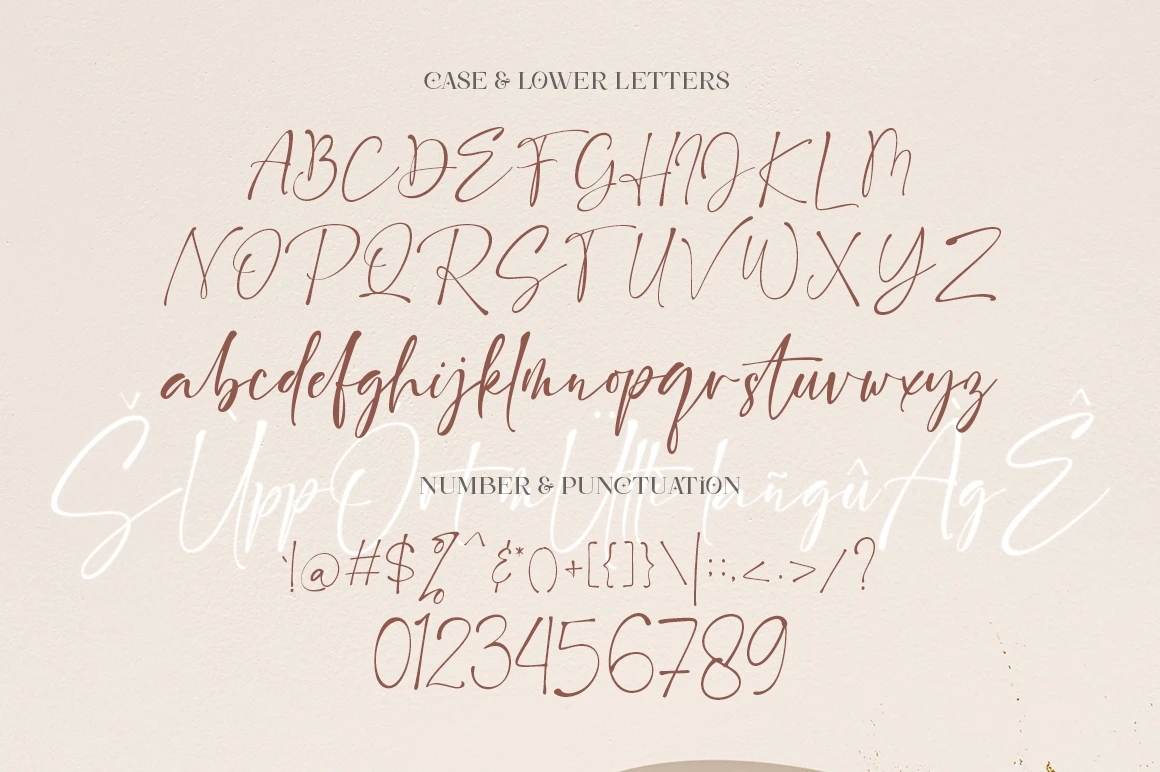 CASE & LOWER LETTERS
ABCDEFGHIJKLM
NOPQRSTUVWXYZ
abcdefghijklmnopqrstuvwxyz
NUMBER & PUNCTUATiON
`!@#$%^&*()+[{]}\|:;,<.>/?
0123456789